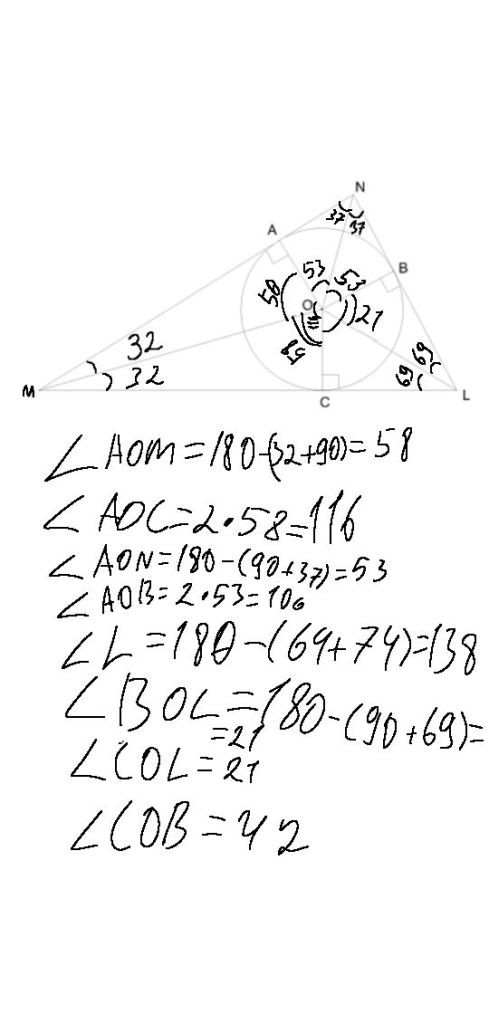 N
37 37
A
B
53 53
58
O
21
58
32
32
69
69
M
C
L
∠AOM=180-(32+90)=58
∠AOC=2·58=116
∠AON=180-(90+37)=53
∠AOB=2·53=106
∠L=180-(64+74)=138
∠BOL=180-(90+69)=
=21
∠COL=21
∠COB=42